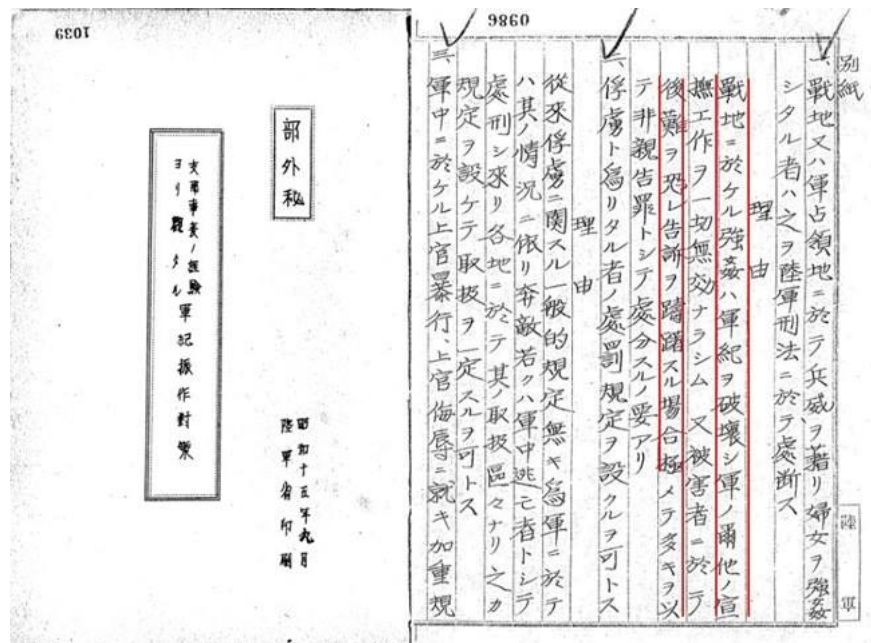 1039
部外秘
支那事変ノ経験
ヨリ観タル軍紀振作対策
昭和十五年九月
陸軍省印刷
0986
別紙
一、戰地又ハ軍占領地ニ於テ兵威ヲ藉リ婦女ヲ強姦
シタル者ハ之ヲ陸軍刑法ニ於テ處断ス
理由
戰地ニ於ケル強姦ハ軍紀ヲ破壊シ軍ノ爾他ノ宣
撫工作ヲ一切無効ナラシム又被害者ニ於テ
後難ヲ恐レ告訴ヲ躊躇スル場合極メテ多キヲ以
テ非親告罪トシテ處分スルノ要アリ
二、俘虜ト為リタル者ノ處罰規定ヲ設クルヲ可トス
理由
從来俘虜ニ関スル一般的規定無キ為軍ニ於テ
ハ其ノ情况ニ依リ奔敵若クハ軍中逃亡者トシテ
處刑シ來リ各地ニ於テ其ノ取扱區々ナリ之カ
規定ヲ設ケテ取扱ヲ一定スルヲ可トス
三、軍中ニ於ケル上官暴行、上官侮辱ニ就キ加重規
陸軍